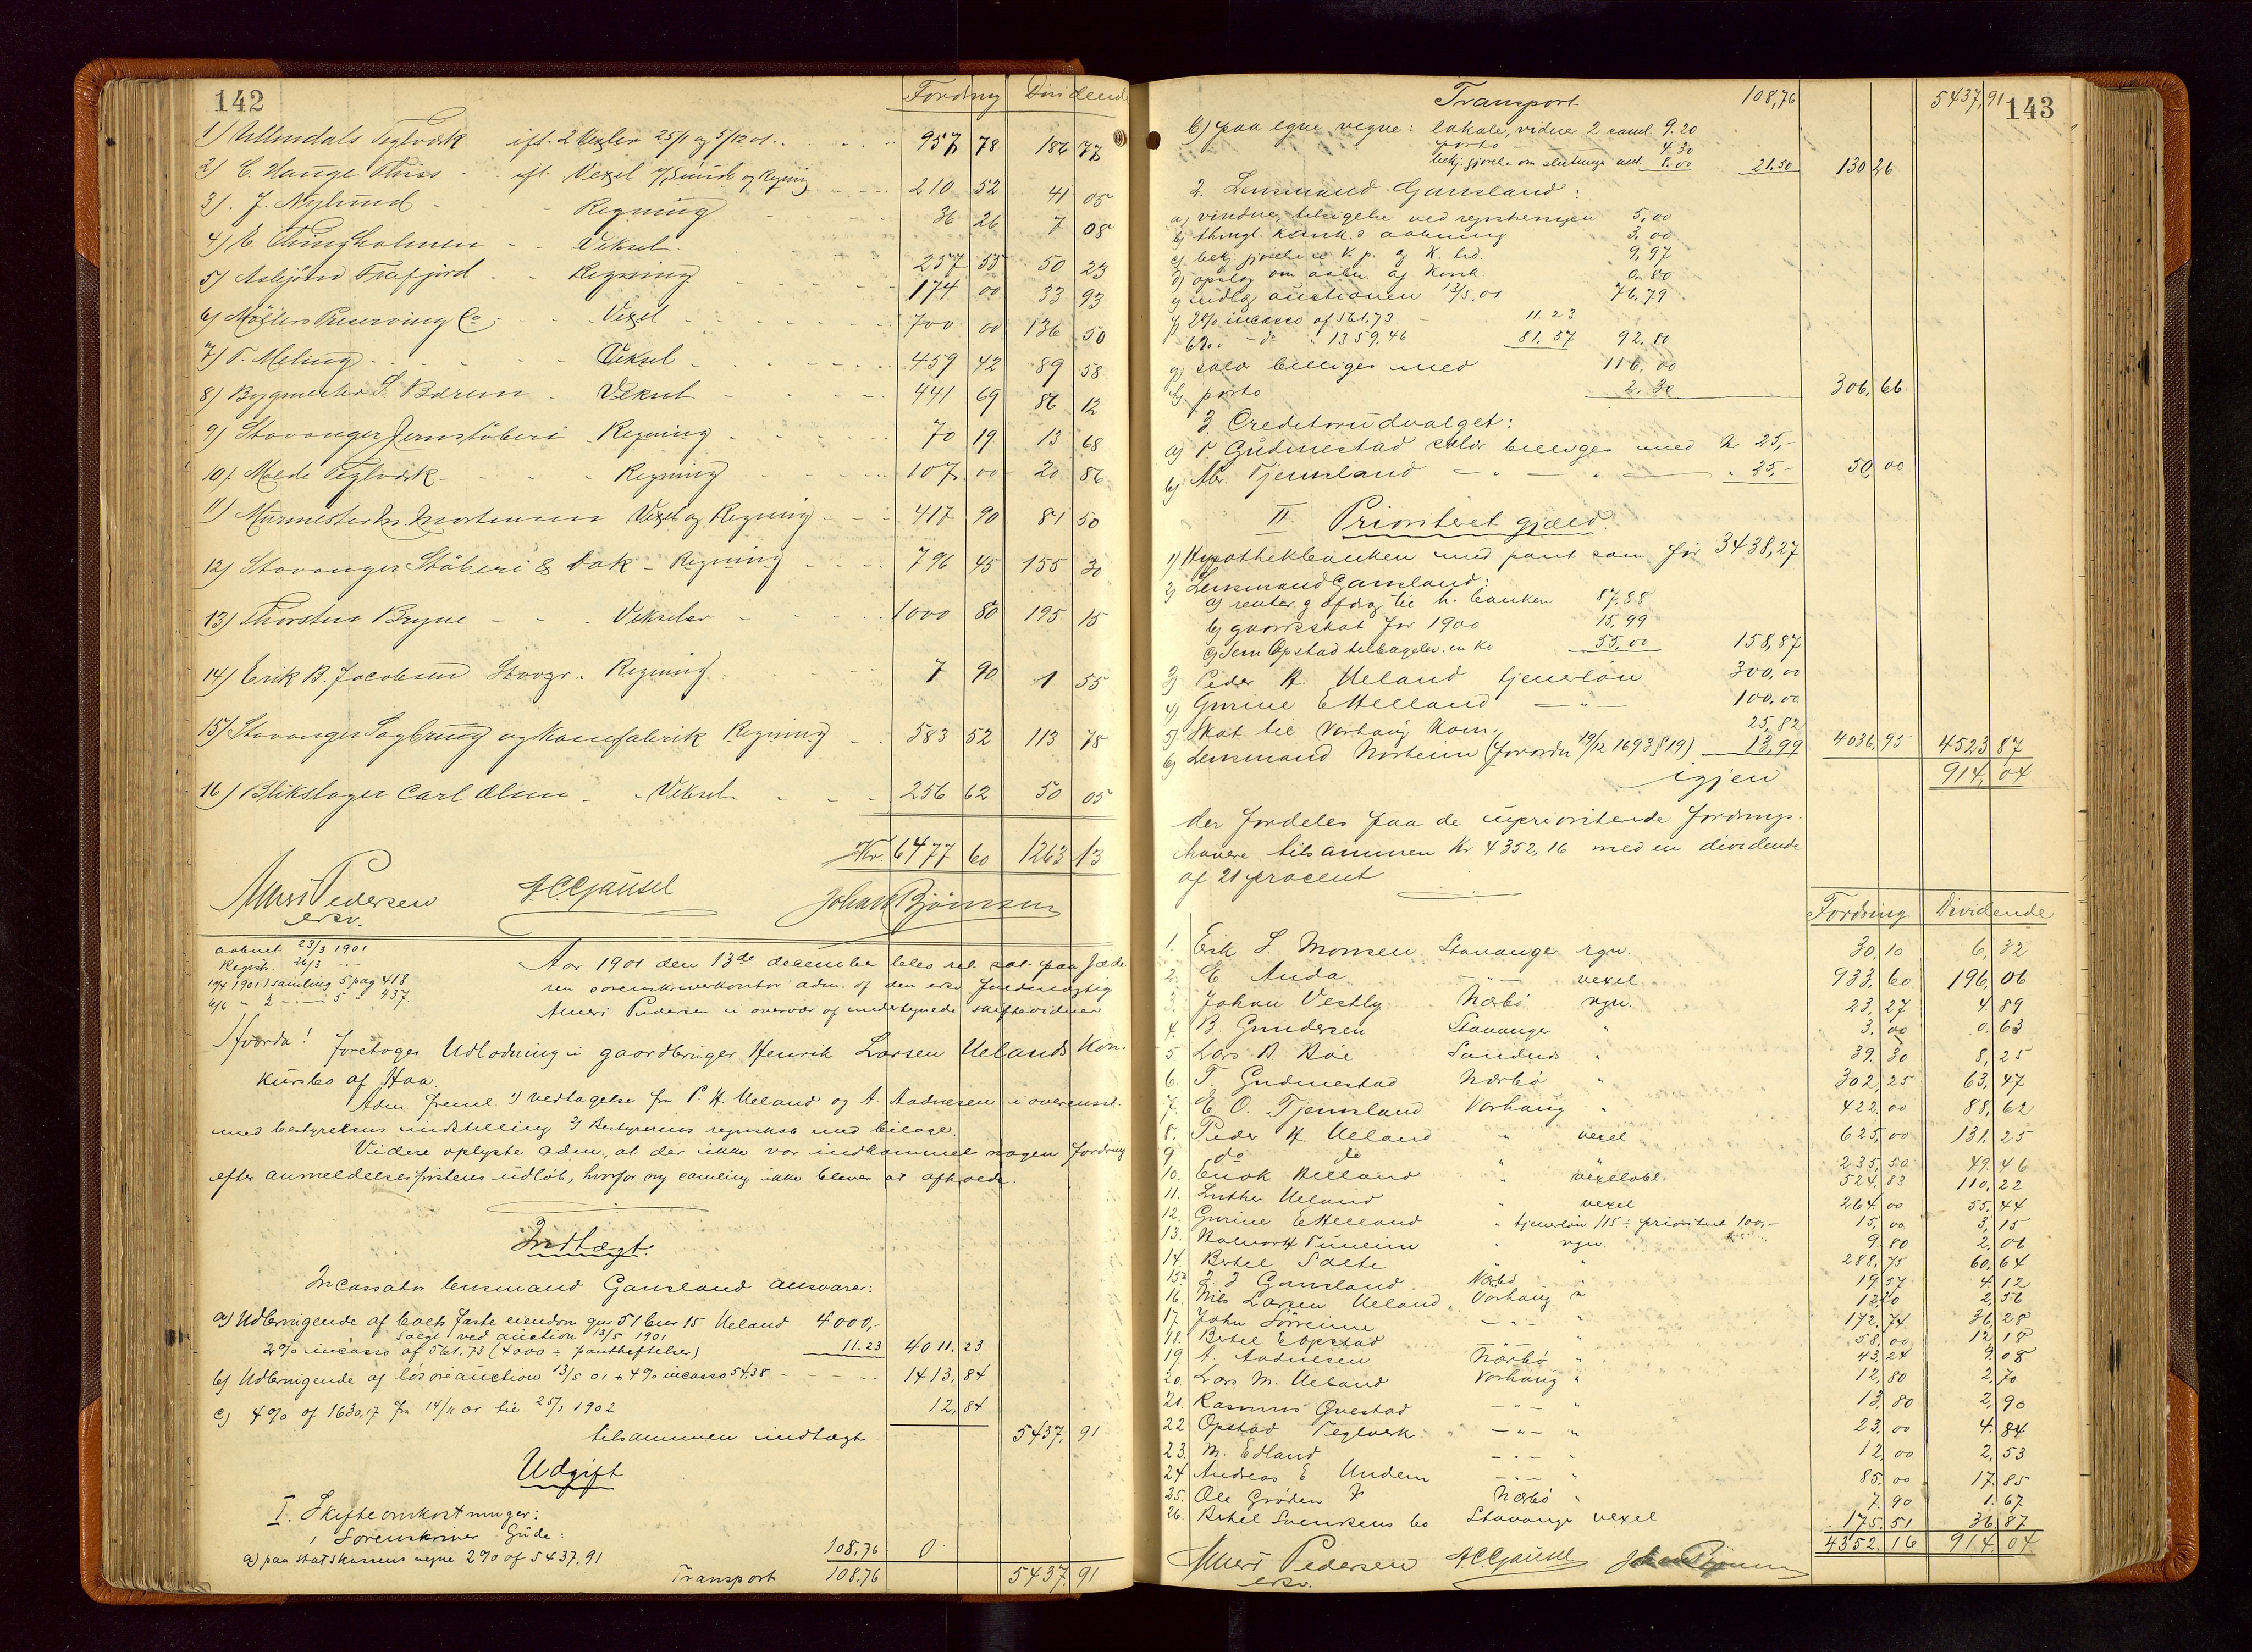 142
Fordring Dividende
1) Teglværk ifl. 2 Vexler 25/1 og 5/12 01. 957 78 186 77
2) C. Hauge Thiis ifl. Vexel og Regning 210 52 41 05
3) J. Nylund Regning 36 26 7 08
4) E. Veksel. 257 55 50 23
5) Asbjörn Frafjord Regning 174 00 33 93
6) Möllers Preserving Co Vexel 700 00 136 50
7) T. Meling Veksel 459 42 89 58
8) Bygmester S. Bærem Veksel 441 69 86 12
9) Stavanger Jernstöberi Regning 70 19 13 68
10) Molde Teglværk Regning 107 00 20 86
11) Murmester Mortensen Vexel og Regning 417 90 81 50
12) Stavanger Stöberi & Dok Regning 796 45 155 30
13) Thorsten Bryne Veksler 1000 80 195 15
14) Erik B. Jacobsen Stavgr. Regning 7 90 1 55
15) Stavanger Sagbrug og Regning 583 52 113 78
16) Blikslager Carl Olsen Veksel 256 62 50 05
Kr. 6477 60 1263 13
Pedersen A C Gausel Johan Bjömsen
csv.
aabnet 23/3 1901
Registr. 26/3
19/4 1901 1 samling 5 pag 418
6/6 " 2 - " - 5 " 437.
Aar 1901 den 13de december blev ret sat paa Jæde-
ren sorenskriverkontor adm. af den csv fuldmægtig
Pedersen i overvær af undertegnede skiftevidner
Hvorda!
Foretoges Udlodning i gaardbruger Henrik Larsen Uelands Kon-
kursbo af Haa.
Adm. freml. 1) vedtagelse fra P. H. Ueland og A. Aadnesen i overensst.
med bestyrelsens indstilling 2) Bestyrerens regnskab med bilage.
Videre oplyste adm., at der ikke var indkommet nogen fordring
efter anmeldelsesfristens udlöb, hvorfor ny samling ikke blever at afholde.
Indtægt.
Incassator lensmand Gausland ansvarer:
a) Udbringende af boets faste eiendom gnr 51 bnr 15 Ueland 4000,-
solgt ved auction 13/5 1901
2% incasso af 561.73 (4000 ÷ pantheftelser) 11.23 4011.23
b) Udbringende af lösöreauction 13/5 01 + 4% incasso 54.38 1413,84
c) 4% af 1630,17 fra 14/11 01 til 25/1 1902 12,84
tilsammen indtægt 5437.91
Udgift
I. Skifteomkostninger:
1 Sorenskriver Gude:
a) paa statskassens vegne 2% af 5437.91 108,76
Transport 108,76 5437.91
143
Transport 108,76 5437,91
b) paa egne vegne: lokale, vidner 2 saml. 9.20
porto 4.30
bekj. gjörelse om slutnings 8.00 21.50 130 26
2. Lensmand Gausland:
a) vidner, tilsigelse ved registreringen 5,00
b) thingl. konk.s aabning 3.00
c) bekj. gjörelse i K. p. og K. tid. 9,97
d) opslag om aabn. af Konk 0.80
e) auctionen 13/5.01 76.79
f) 2% incasso af 561,73 11.23
6% - do " 1359,46 81.57 92.80
g) salær billiges med 116,00
h) porto 2.30 306,66
3. Creditorudvalget:
a) T. Gudmestad salær billiges med Kr 25,-
b) Abr. Tjemsland - " - " - " 25,- 50,00
II. Prioriteret gjæld.
1) Hypothekbanken med pant som för 3438,27
2) Lensmand Gausland:
a) renter og afdrag til h. banken 87.88
b) gaardsskat for 1900 15,99
c) Opstad tilbagelev. en ko 55,00 158,87
3) Peder H. Ueland tjenerlön 300,00
4) Gurine E Helland - " - 100,00
5) Skat til Varhaug Kom. 25,82
6) Lensmand Norheim (Forordn 19/12 1693 § 19) 13,99 4036,95 4523 87
igjen 914,04
der fordeles paa de uprioriterede fordrings-
havere tilsammen Kr 4352,16 med en dividende
af 21 procent
Fordring Dividende
1. Erik S. Monsen Stavanger rgn. 30,10 6,32
2. E Anda - " - vexel 933,60 196,06
3. Johan Vestly Nærbö rgn. 23,27 4.89
4. B. Gundersen Stavanger " 3.00 0.63
5. Lars B. Böe Sandnes " 39.30 8,25
6. T. Gudmestad Nærbö " 302,25 63,47
7. E. O. Tjemsland Varhaug " 422.00 88,62
8. Peder H Ueland " vexel 625,00 131.25
9. do do " " 235,50 49.46
10. Enok Helland " vexelobl. 524.83 110,22
11. Luther Ueland " vexel 264.00 55.44
12. Gurine E Helland " tjenerlön 115 ÷ prioritet 100,- 15,00 3,15
13. Tuneim " rgn. 9.80 2.06
14. Bertel Salte " " 288,75 60,64
15. J. J Gausland Nærbö " 19,57 4.12
16. Nils Larsen Ueland Varhaug " 12,20 2,56
17. John Sörreime - " - " 172,74 36,28
18. Bertel E Opstad - " - " 58,00 12,18
19. A. Aadnesen Nærbö " 43,24 9.08
20. Lars M. Ueland Varhaug " 12,80 2,70
21. Rasmus Qvestad - " - " 13,80 2,90
22 Opstad Teglverk - " - " 23.00 4.84
23. M. Edland - " - " 12,00 2,53
24 Andreas E Undem - " - " 85,00 17.85
25. Ole Gröden Nærbö " 7.90 1.67
26. Bertel Svensens bo Stavanger vexel 175.51 36.87
4352.16 914.04
Pedersen A C Gausel Johan Bjömsen
csv.